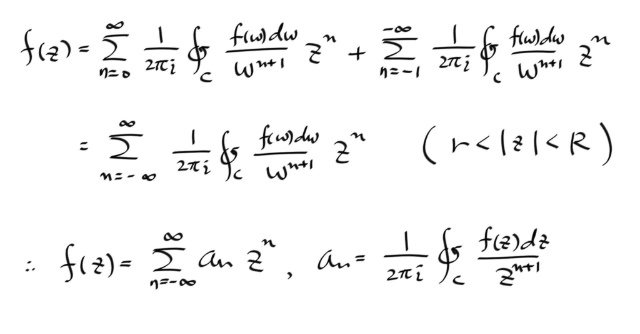 f(z) = ∑_{n=0}^{∞} \frac{1}{2πi} ∮_C \frac{f(w)dw}{w^{n+1}} z^n + ∑_{n=-1}^{-∞} \frac{1}{2πi} ∮_C \frac{f(w)dw}{w^{n+1}} z^n
= ∑_{n=-∞}^{∞} \frac{1}{2πi} ∮_C \frac{f(w)dw}{w^{n+1}} z^n ( r < |z| < R )
∴ f(z) = ∑_{n=-∞}^{∞} a_n z^n, a_n = \frac{1}{2πi} ∮_C \frac{f(z)dz}{z^{n+1}}